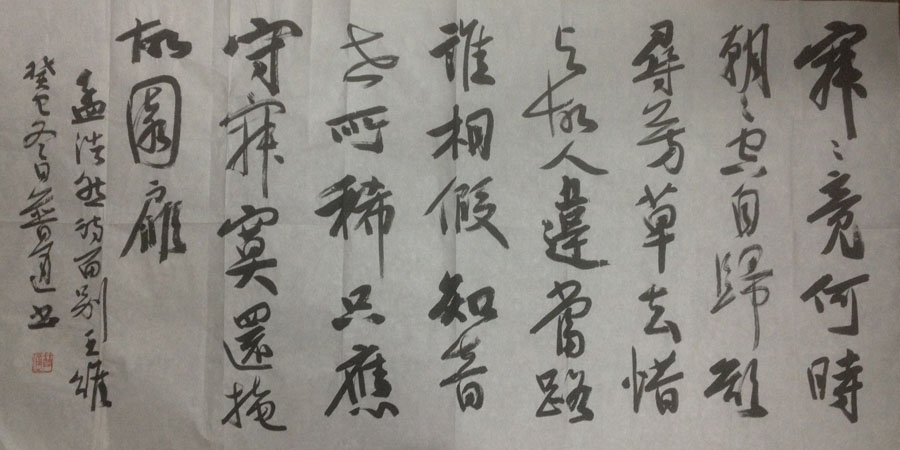 寂〻竟何時
朝〻空自歸欲
尋芳草去惜
与故人違當路
誰相假知音
世所稀只應
守寂寞還掩
故園扉
孟浩然詩留别王維
癸巳冬日普書